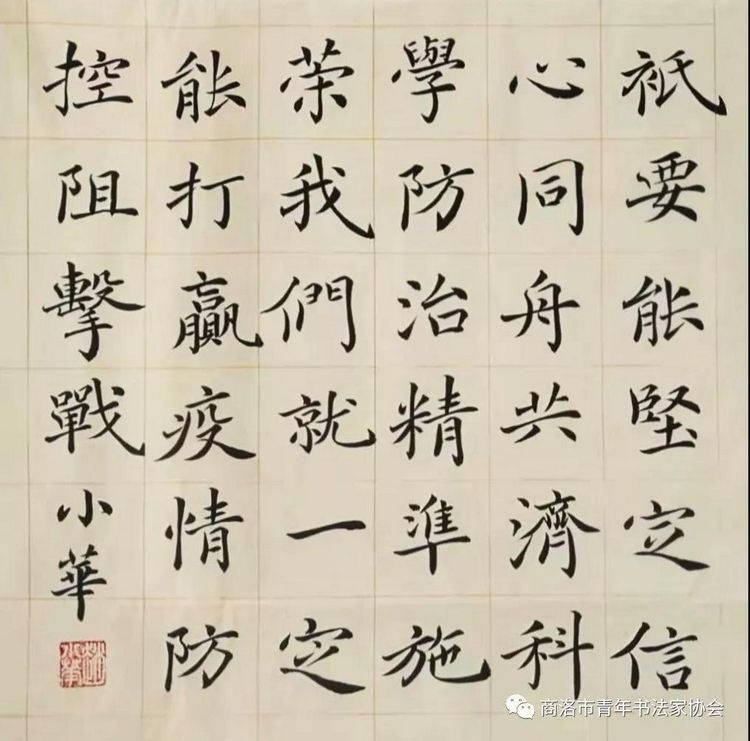 衹要能堅定信
心同舟共濟科
學防治精準施
策我們就一定
能打贏疫情防
控阻擊戰
小華
商洛市青年书法家协会